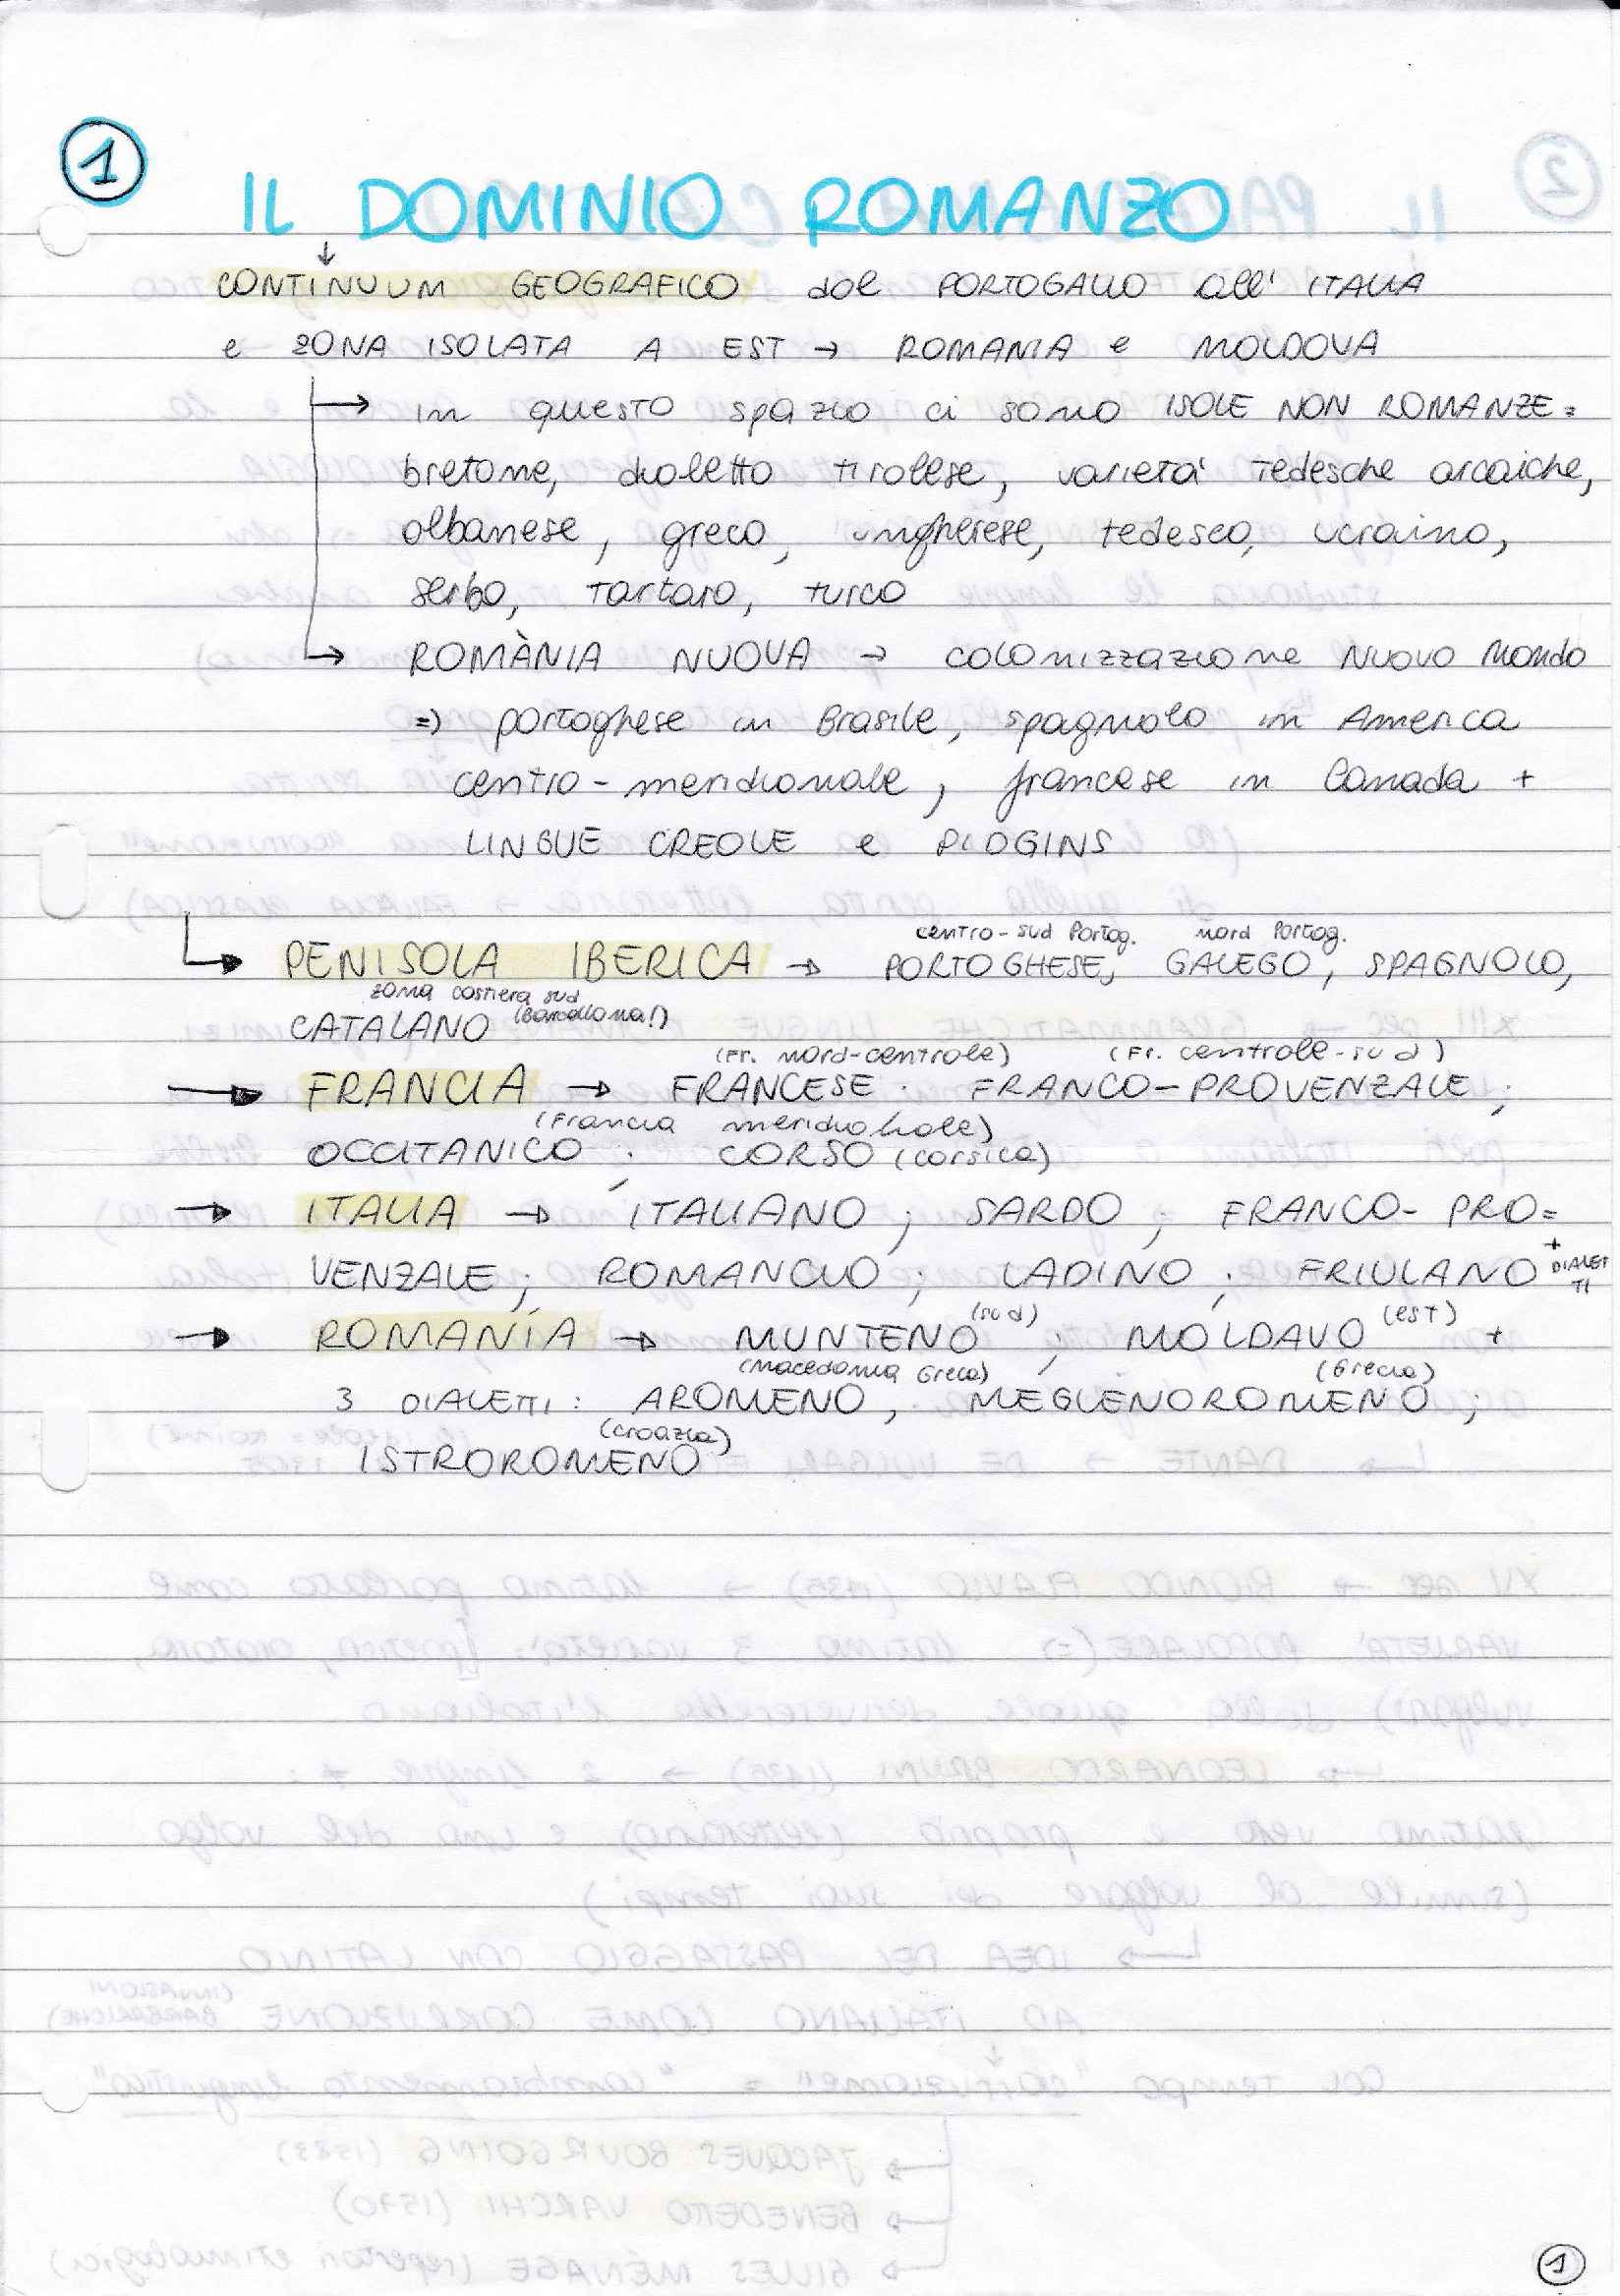 1
IL DOMINIO ROMANZO
↓
CONTINUUM GEOGRAFICO dal PORTOGALLO all' ITALIA
e ZONA ISOLATA A EST → ROMANIA e MOLDOVA
→ in questo spazio ci sono ISOLE NON ROMANZE =
bretone, dialetto tirolese, varietà tedesche arcaiche,
albanese, greco, ungherese, tedesco, ucraino,
serbo, tartaro, turco
→ ROMÀNIA NUOVA → colonizzazione NUOVO MONDO
=> portoghese in Brasile, spagnolo in America
centro-meridionale, francese in Canada +
LINGUE CREOLE e PIDGINS
centro-sud Portog. nord Portog.
→ PENISOLA IBERICA → PORTOGHESE, GALEGO, SPAGNOLO,
zona costiera sud
CATALANO (Barcellona!)
(Fr. nord-centrale) (Fr. centrale-sud)
→ FRANCIA → FRANCESE; FRANCO-PROVENZALE;
(Francia meridionale)
OCCITANICO; CORSO (Corsica)
→ ITALIA → ITALIANO; SARDO; FRANCO-PRO=
VENZALE; ROMANCIO; LADINO; FRIULANO + DIALET
TI
(sud) (est)
→ ROMANÍA → MUNTENO; MOLDAVO +
(Macedonia Greca) (Grecia)
3 DIALETTI: AROMENO, MEGLENOROMENO;
(Croazia)
ISTROROMENO
1